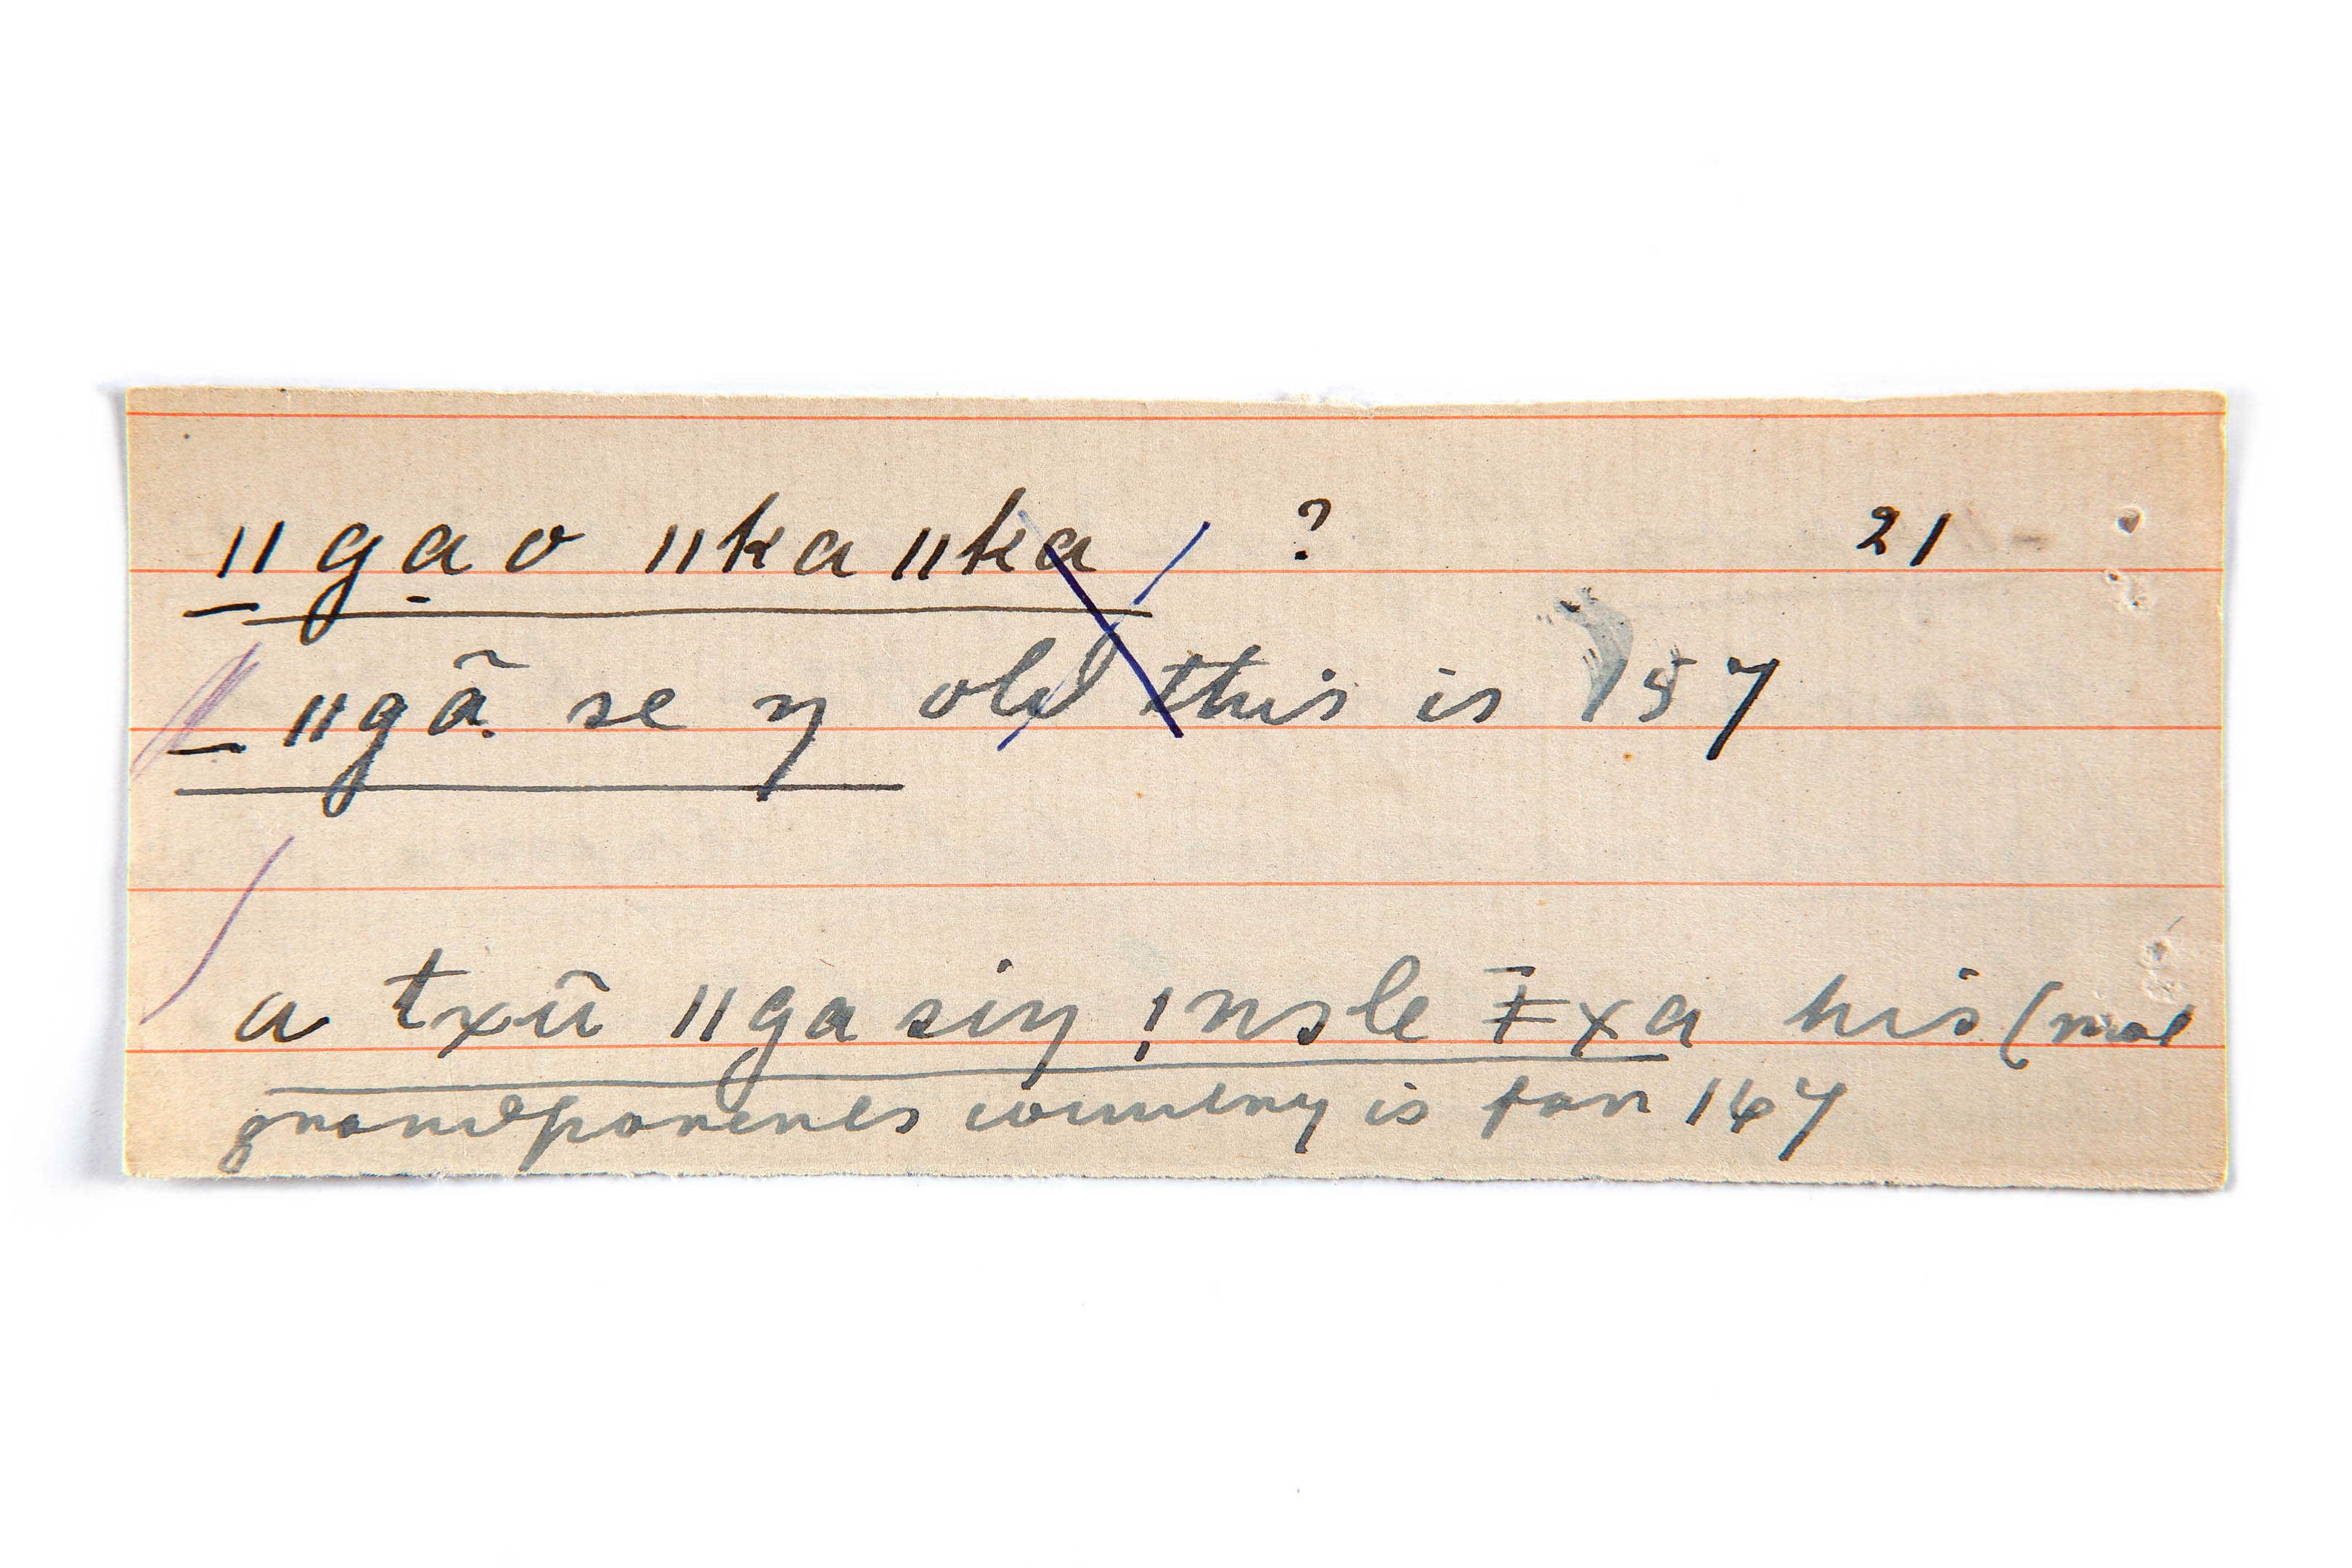 ǁgao ǁkaǁka ? 21
ǁgã se ŋ old this is 157
a txũ ǁga siŋ !nsle ǂxa his (mal
grandparents country is far 167